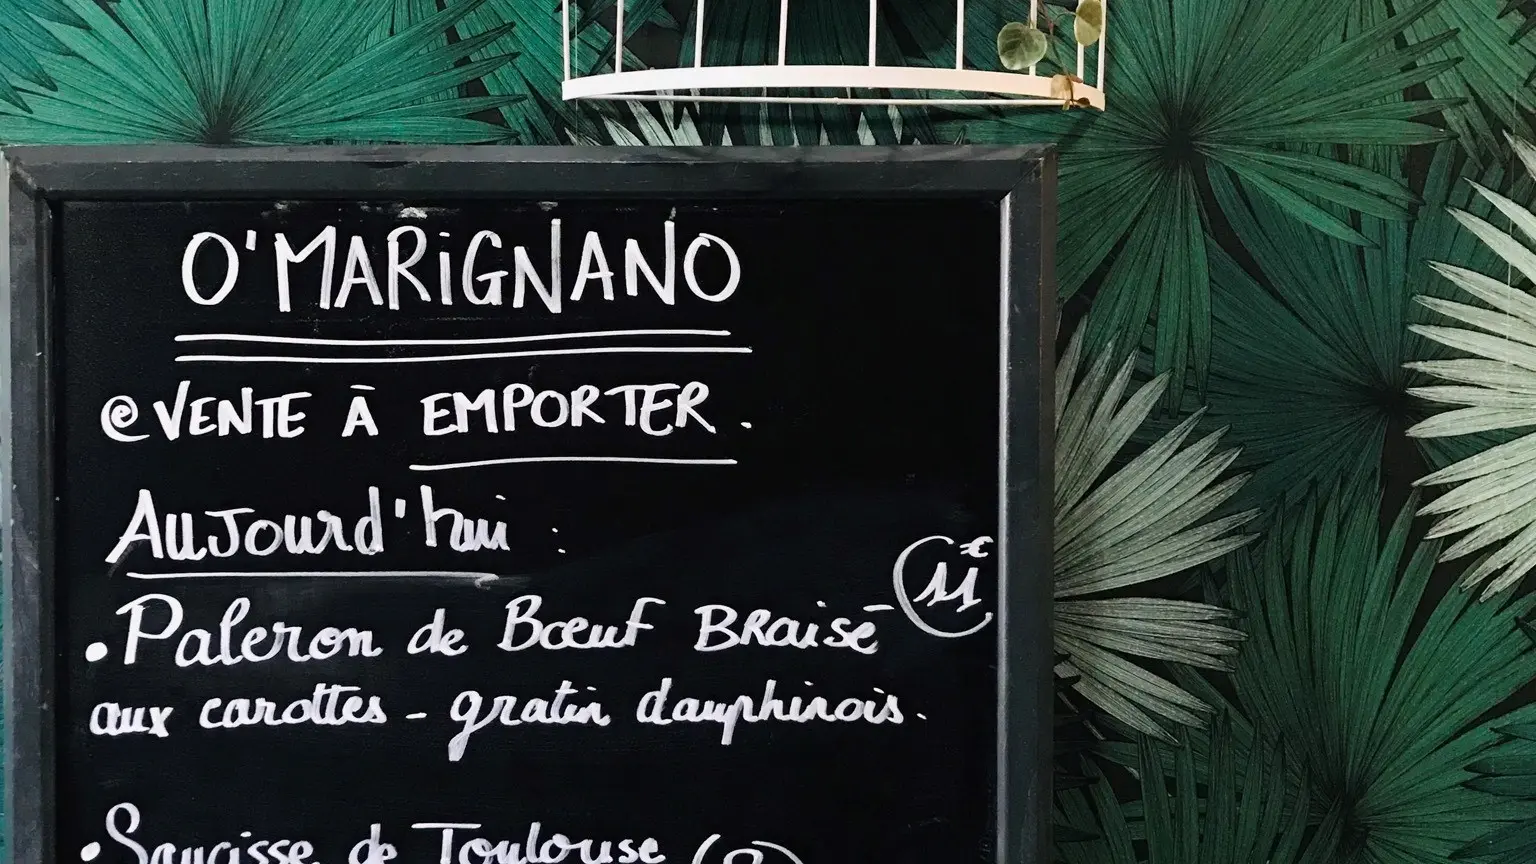 O'MARiGNANO
@ VENTE À EMPORTER.
Aujourd'hui :
• Paleron de Bœuf Braisé 11€
aux carottes - gratin dauphinois.
• Saucisse de Toulouse